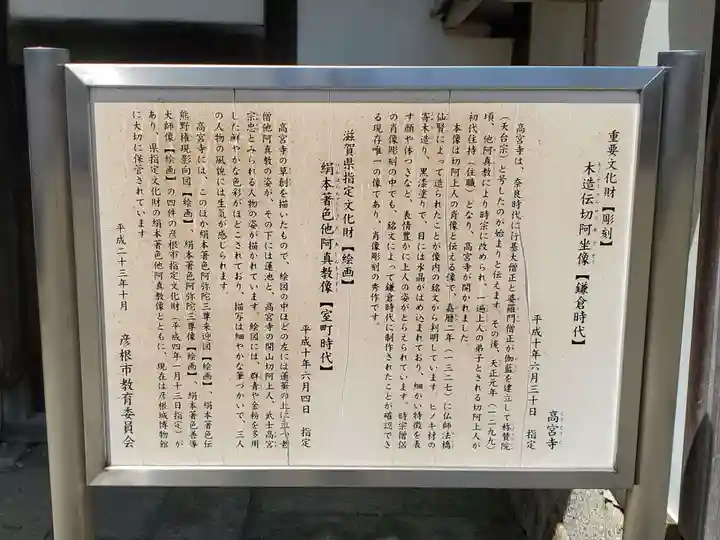 重要文化財【彫刻】
木造伝切阿坐像【鎌倉時代】
平成十年六月三十日　指定
高宮寺
高宮寺は、奈良時代に行基大僧正と婆羅門僧正が伽藍を建立して称讃院
（天台宗）と号したのが始まりと伝えます。その後、天正元年（一二九九）
頃、他阿真教により時宗に改められ、一遍上人の弟子とされる切阿上人が
初代住持（住職）となり、高宮寺が開かれました
本像は切阿上人の肖像と伝える像で、嘉暦二年（一三二七）に仏師法橋
仙賢によって造られたことが像内の銘文から判明しています。ヒノキ材の
寄木造り、黒漆塗りで、目には水晶がはめ込まれており、細かい特徴を表
す顔や体つきなど、表情豊かに上人の姿がとらえられています。時宗僧侶
の肖像彫刻の中でも、銘文によって鎌倉時代に制作されたことが確認でき
る現存唯一の像であり、肖像彫刻の秀作です。
滋賀県指定文化財【絵画】
絹本著色他阿真教像【室町時代】
平成十年六月四日　指定
高宮寺の草創を描いたもので、絵図の中ほどの左には蓮華の上に立つ老
僧他阿真教の姿が、その下には蓮池と、高宮寺の開山切阿上人、武士高宮
宗忠とみられる人物の姿が描かれています。絵図には、群青や金粉を多用
した鮮やかな色彩がほどこされており、描写は細やかな筆づかいで、三人
の人物の風貌には生気が感じられます。
高宮寺には、このほか絹本著色阿弥陀三尊来迎図【絵画】、絹本著色
熊野権現影向図【絵画】、絹本著色阿弥陀三尊像【絵画】、絹本著色善導
大師像【絵画】の四件の彦根市指定文化財（平成四年一月十三日指定）が
あり、県指定文化財の絹本著色他阿真教像とともに、現在は彦根城博物館
に大切に保管されています。
平成二十三年十月　彦根市教育委員会